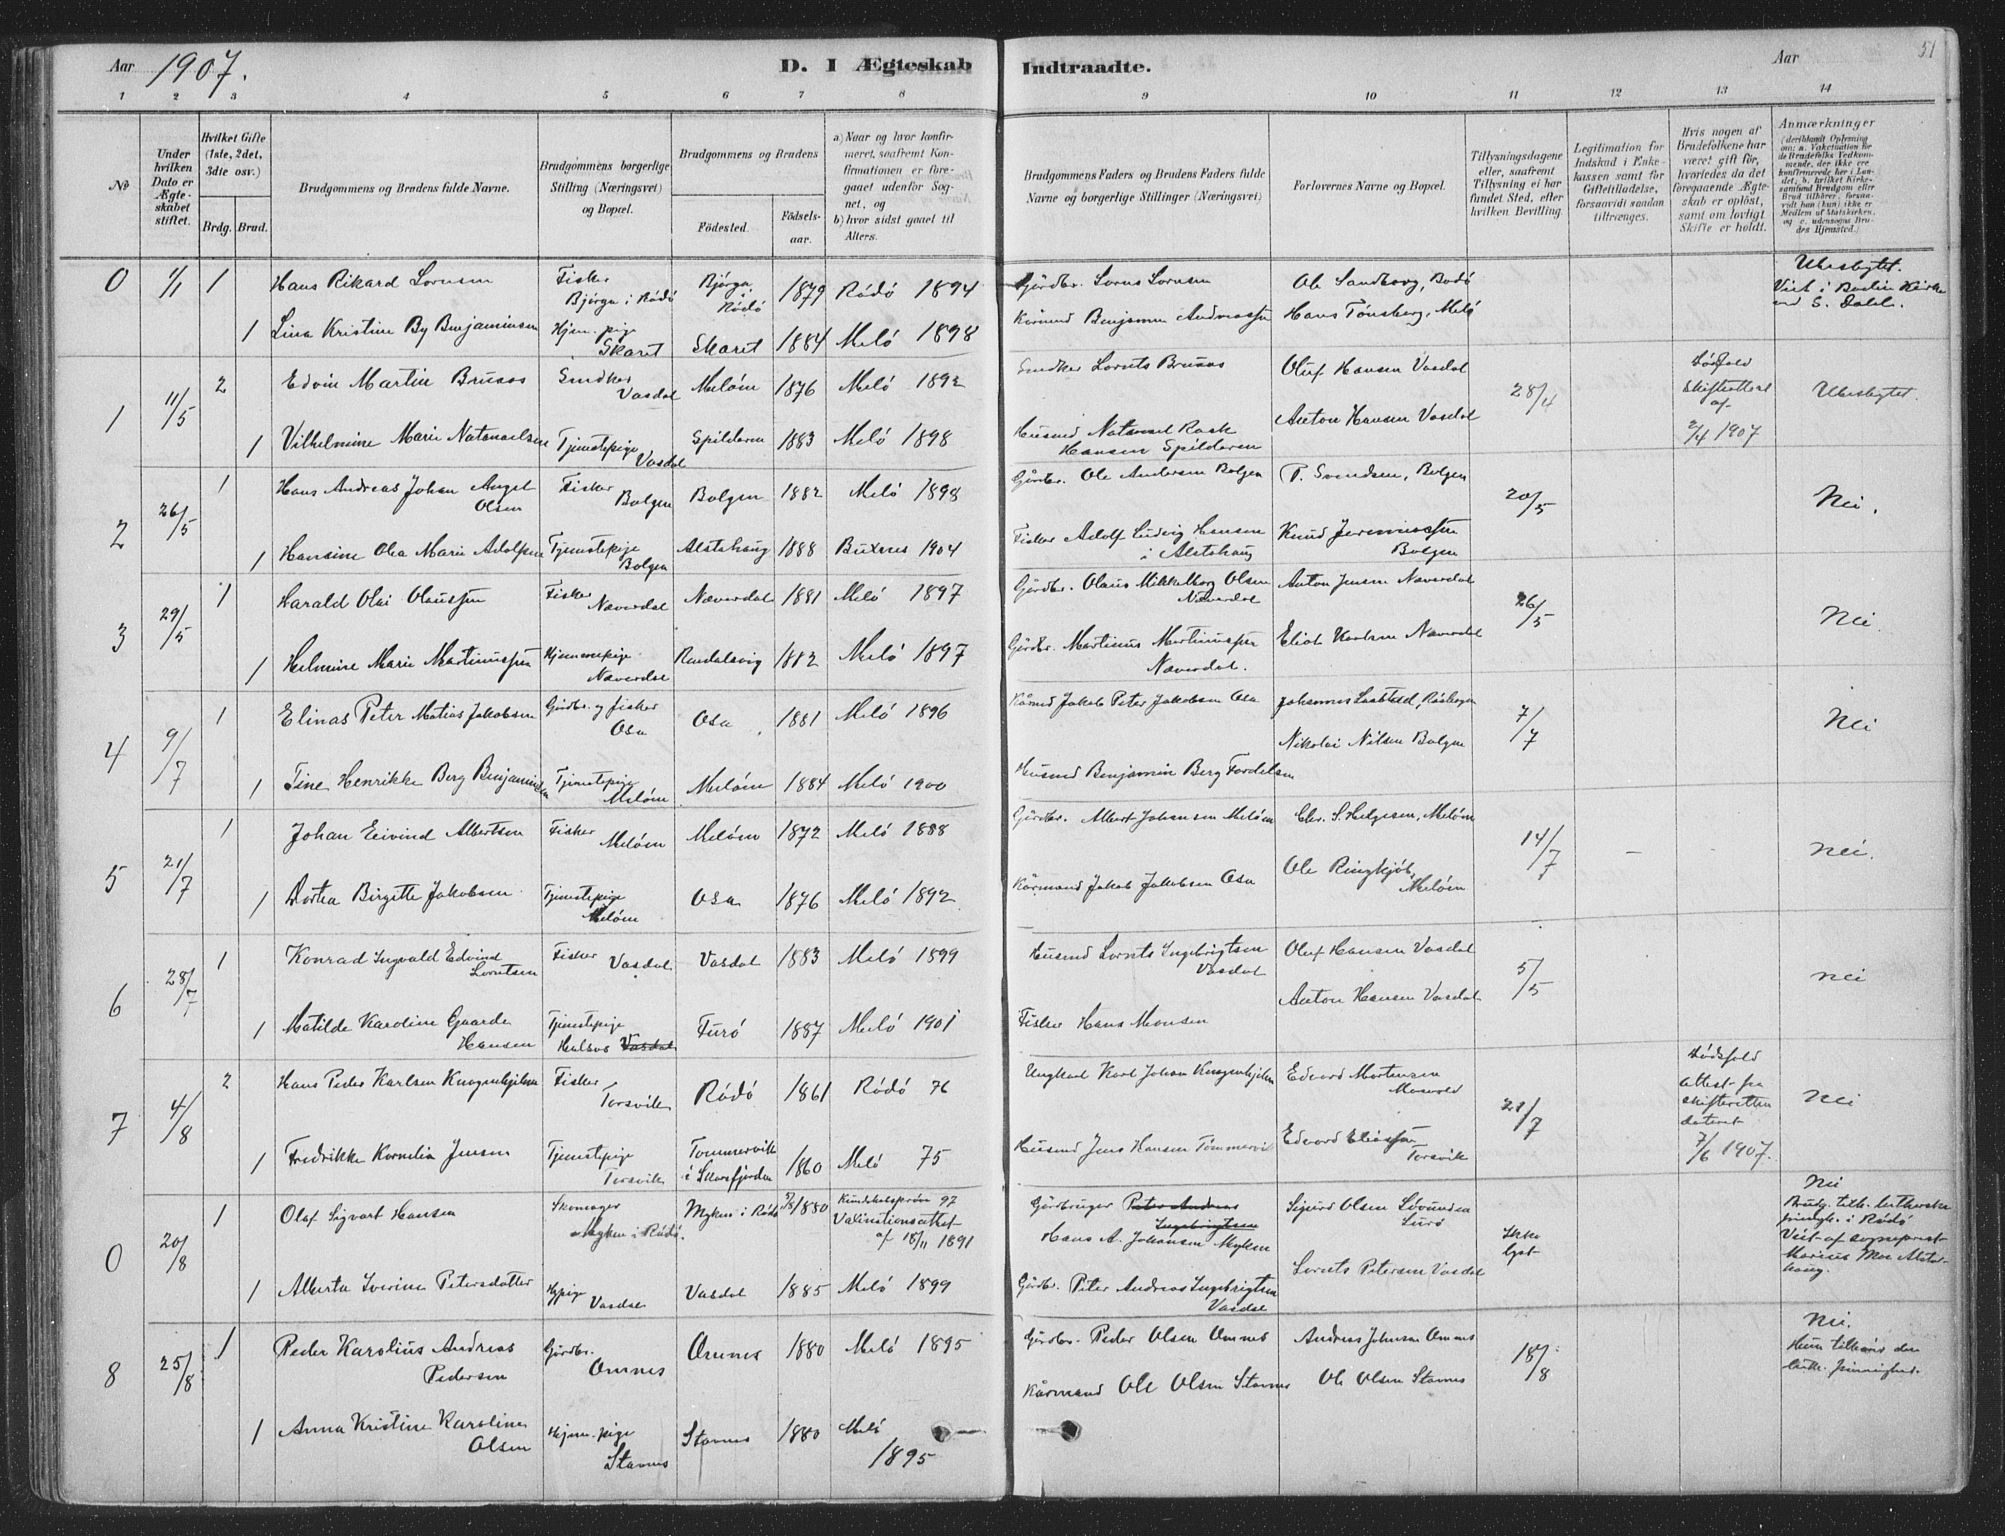 Aar 1907.
D. I Ægteskab Indtraadte.
Aar
51
1 2 3 4 5 6 7 8 9 10 11 12 13 14
No
Under hvilken Dato er Ægteskabet stiftet.
Hvilket Gifte (1ste, 2det, 3die osv.)
Brdg. Brud.
Brudgommens og Brudens fulde Navne.
Brudgommens borgerlige Stilling (Næringsvei) og Bopæl.
Brudgommens og Brudens
Fødested.
Fødsels-aar.
a) Naar og hvor konfirmeret, saafremt Konfirmationen er foregaaet udenfor Sognet, og
b) hvor sidst gaaet til Alters.
Brudgommens Faders og Brudens Faders fulde Navne og borgerlige Stillinger (Næringsvei)
Forlovernes Navne og Bopæl.
Tillysningsdagene eller, saafremt Tillysning ei har fundet Sted, efter hvilken Bevilling.
Legitimation for Indskud i Enkekassen samt for Giftetilladelse, forsaavidt saadan tiltrænges.
Hvis nogen af Brudefolkene har været gift før, hvorledes da det foregaaende Ægteskab er opløst, samt om lovligt Skifte er holdt.
Anmærkninger
(deriblandt Oplysning om: a. Vakcination for de Brudefolks Vedkommende, der ikke ere konfirmerede her i Landet; b. hvilket Kirkesamfund Brudgom eller Brud tilhører, forsaavidt han (hun) ikke er Medlem af Statskirken, og c. udensogns Brudes Hjemsted.)
0 1/1 1 Hans Rikard Lornsen Fisker Bjørga i Rødø Bjørga, Rødø 1879 Rødø 1894 Gårdbr. Lorns Lornsen Ole Sandberg, Bodø Ubeslegtet. Viet i Bodin Kirke ved S. Dahl.
1 Lina Kristine By Benjaminsen Hjem. pige Skaret Skaret 1884 Melø 1898 Kårmand Benjamin Andreassen Hans Tønsberg, Melø
1 11/5 2 Edvin Martin Brusos Snedker Vasdal Meløen 1876 Melø 1892 Snedker Lornts Brusos Oluf Hansen Vasdal 28/4 Dødsfald Skifteattest af 2/4 1907 Ubeslegtet.
1 Vilhelmine Marie Natanaelsen Tjenstepige Vasdal Spilderen 1883 Melø 1898 Husmd Natanael Rask Hansen Spilderen Anton Hansen Vasdal
2 26/5 1 Hans Andreas Johan Angel Olsen Fisker Bolgen Bolgen 1882 Melø 1898 Gårdbr. Ole Andersen Bolgen P. Svendsen, Bolgen 20/5 Nei.
1 Hansine Olea Marie Adolfsen Tjenstepige Bolgen Alstahaug 1888 Buxnes 1904 Fisker Adolf Ludvig Hansen i Alstahaug Knud Jeremiassen Bolgen
3 29/5 1 Harald Olai Olaussen Fisker Næverdal Næverdal 1881 Melø 1897 Gårdbr. Olaus Mikkelborg Olsen Næverdal Anton Jensen Næverdal 26/5 Nei.
1 Helmine Marie Martinussen Hjemmepige Næverdal Rendalsvig 1882 Melø 1897 Gårdbr. Martinus Martinussen Næverdal. Eliot Karlsen Næverdal
4 9/7 1 Elinas Peter Matias Jakobsen Gårdbr. og fisker Osa Osa 1881 Melø 1896 Kårmd Jakob Peter Jakobsen Osa Johannes 7/7 Nei
1 Tine Henrikke Berg Benjaminsen Tjenstepige Meløen Meløen 1884 Melø 1900 Husmd Benjamin Berg Fordelsen Nikolai Nilsen Bolgen
5 21/7 1 Johan Eivind Albertsen Fisker Meløen Meløen 1872 Melø 1888 Gårdbr. Albert Johansen Meløen Chr. S. Helgesen, Meløen 14/7 – Nei.
1 Dortea Birgitte Jakobsen Tjenstepige Meløen Osa 1876 Melø 1892 Kårmand Jakob Jakobsen Osa Ole Ringkjøb, Meløen
6 28/7 1 Konrad Ingvald Edvind Lorntsen Fisker Vasdal Vasdal 1883 Melø 1899 Husmd Lornts Ingebrigtsen Vasdal Oluf Hansen Vasdal 5/5 Nei
1 Matilde Karoline Gaarde Hansen Tjenstepige Halsos Vasdal Furø 1887 Melø 1901 Fisker Hans Monsen Anton Hansen Vasdal
7 4/8 2 Hans Peder Karlsen Knagenhjelm Fisker Torsvik Rødø 1861 Rødø 76 Ungkarl Karl Johan Knagenhjelm Edvard Mortensen Mosvold 21/7 Dødsfald Attest fra skifteretten dateret 7/6 1907. Nei
1 Fredrikke Kornelia Jensen Tjenstepige Torsvik Tømmervik i Skarsfjorden 1860 Melø 75 Husmd Jens Hansen Tømmervik Edvard Eliassen Torsvik
0 20/8 1 Olaf Sigvart Hansen Skomager Myken i Rødø. Myken i Rødø 1880 Kundskabsprøve 97 Vaxinationsattest af 18/11 1891 Gårdbruger Peter Andreas Ingebrigtsen Hans A. Johansen Myken Sigurd Olsen Løvunden Lurø Ikke lyst Nei Brudg. tilh. lutherske frimgh. i Rødø Viet af sogneprest Marius Moe Alstahaug.
1 Alberta Iverine Petersdatter Hjpige Vasdal Vasdal 1885 Melø 1899 Gårdbr. Peter Andreas Ingebrigtsen Vasdal Lornts Petersen Vasdal
8 25/8 1 Peder Karolius Andreas Pedersen Gårdbr. Ømnes Ørnes 1880 Melø 1895 Gårdbr. Peder Olsen Ømnes Andreas Johnsen Ømnes 18/8 Nei. Hun tilhører den luth. frimenighed.
1 Anna Kristine Karoline Olsen Hjem. pige Stavnes Stavnes 1880 Melø 1895 Kårmand Ole Olsen Stavnes Ole Olsen Stavnes